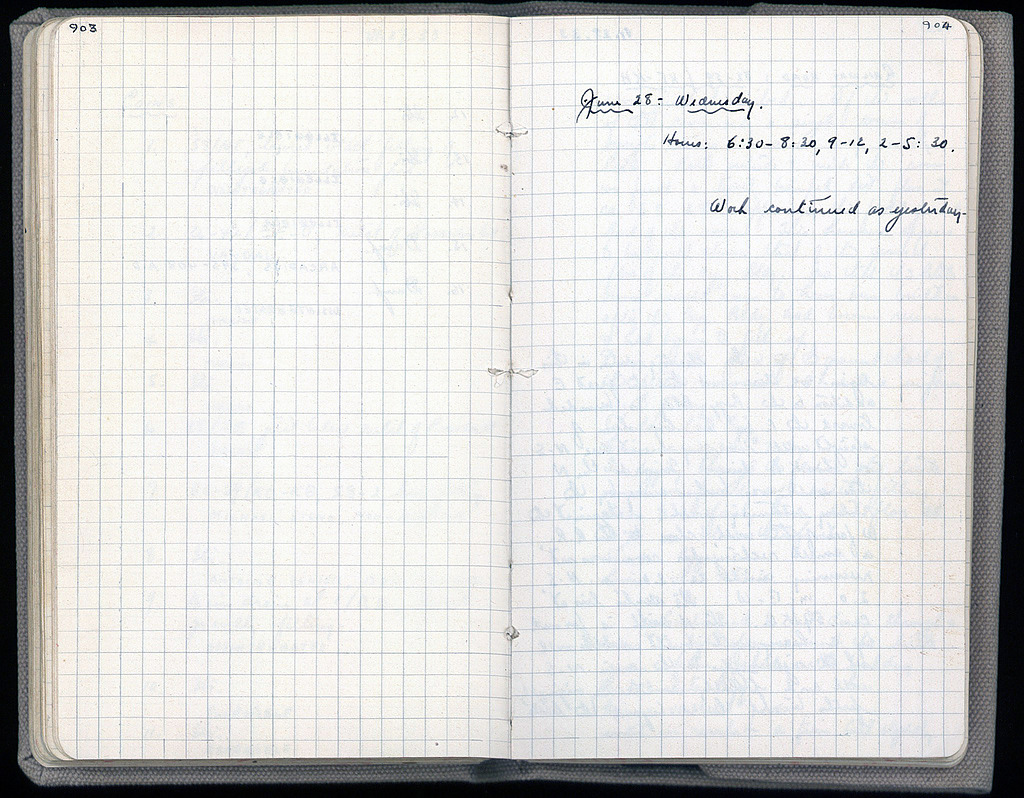 903
904
June 28 - Wednesday.
Hours: 6:30 - 8:30, 9-12, 2-5:30.
Work continued as yesterday -